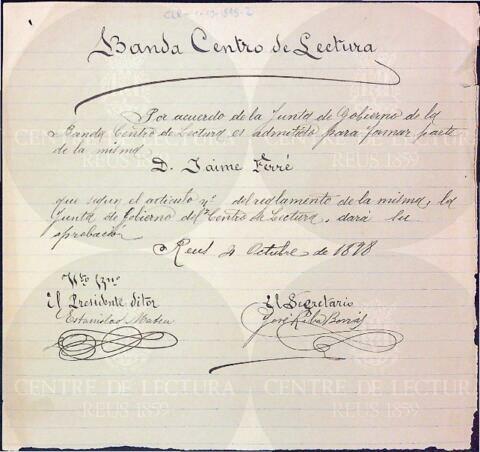 Banda Centro de Lectura
Por acuerdo de la Junta de Gobierno de la
Banda Centro de Lectura es admitido para formar parte
de la misma
D. Jaime Ferré
que segun el articulo nº del reglamento de la misma, la
Junta de Gobierno del Centro de Lectura, dará su
aprobación
Reus 4 Octubre de 1898
El Presidente
El Secretario
Estanislao Mateu
José Riba
CENTRE DE LECTURA
REUS 1859
CENTRE DE LECTURA
REUS 1859
CENTRE DE LECTURA
REUS 1859
CENTRE DE LECTURA
REUS 1859